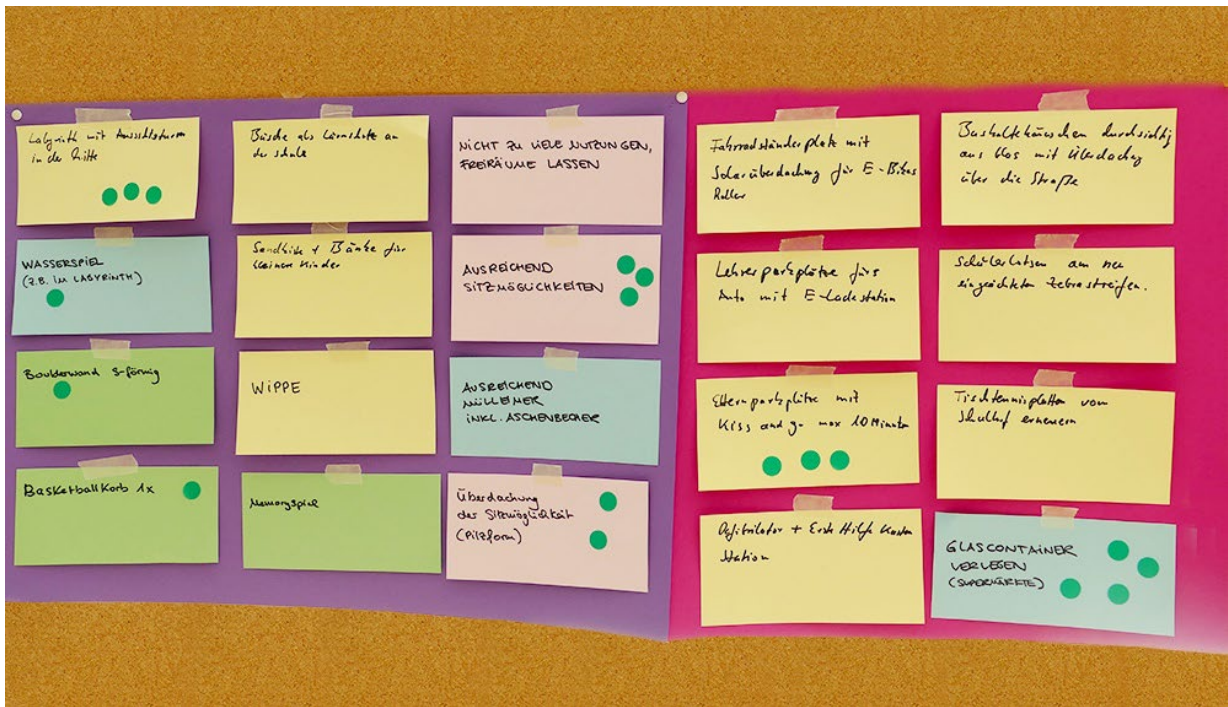 Labyrinth mit Aussichtsturm
in der Mitte
WASSERSPIEL
(Z.B. IM LABYRINTH)
Boulderwand S-förmig
Basketballkorb 1x
Büsche als Lärmschutz an
der Schule
Sandkiste + Bänke für
kleinere Kinder
WIPPE
Memoryspiel
NICHT ZU VIELE NUTZUNGEN,
FREIRÄUME LASSEN
AUSREICHEND
SITZMÖGLICHKEITEN
AUSREICHEND
MÜLLEIMER
INKL. ASCHENBECHER
Überdachung
der Sitzmöglichkeit
(Pilzform)
Fahrradständerplatz mit
Solarüberdachung für E-Bikes
Roller
Lehrerparkplätze fürs
Auto mit E-Ladestation
Elternparkplätze mit
Kiss and go max 10 Minuten
Defibrilator + Erste Hilfe Kasten
Station
Bushaltehäuschen durchsichtig
aus Glas mit Überdachung
über die Straße
Schülerlotsen am neu
eingerichteten Zebrastreifen.
Tischtennisplatten vom
Schulhof erneuern
GLASCONTAINER
VERLEGEN
(SUPERMÄRKTE)